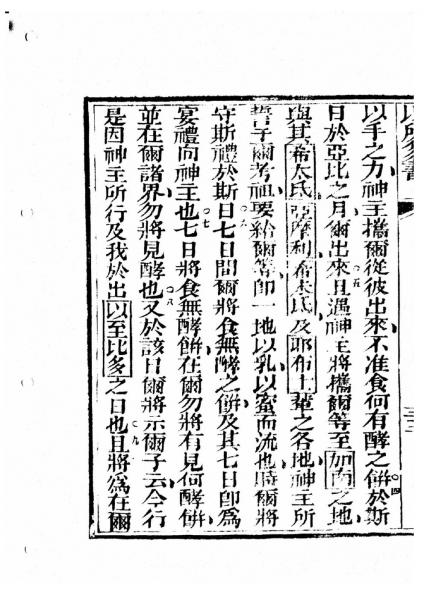 以手之力神主攜爾從彼出來不准食何有酵之餅於斯
日於亞比之月爾出來且過神主將攜爾等至加南之地
與其希太氏亞摩利希未氏及耶布士輩之各地神主所
誓于爾考祖要給爾等卽一地以乳以蜜而流也時爾將
守斯禮於斯日七日間爾將食無酵之餅及其七日卽為
宴禮向神主也七日將食無酵餅在爾勿將有見何酵餅
並在爾諸界勿將見酵也又於該日爾將示爾子云今行
是因神主所行及我於出以至比多之日也且將為在爾